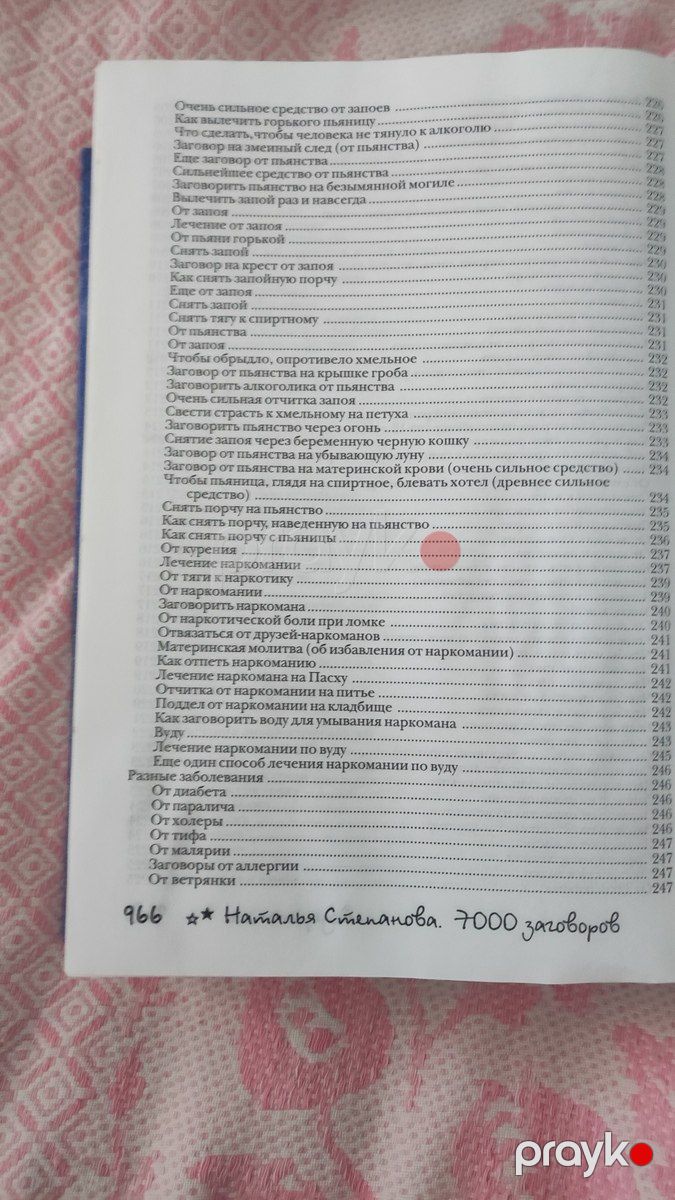 Очень сильное средство от запоев 226
Как вылечить горького пьяницу 226
Что сделать, чтобы человека не тянуло к алкоголю 227
Заговор на змеиный след (от пьянства) 227
Еще заговор от пьянства 227
Сильнейшее средство от пьянства 228
Заговорить пьянство на безымянной могиле 228
Вылечить запой раз и навсегда 228
От запоя 229
Лечение от запоя 229
От пьяни горькой 229
Снять запой 229
Заговор на крест от запоя 230
Как снять запойную порчу 230
Еще от запоя 230
Снять запой 231
Снять тягу к спиртному 231
От пьянства 231
От запоя 231
Чтобы обрыдло, опротивело хмельное 232
Заговор от пьянства на крышке гроба 232
Заговорить алкоголика от пьянства 232
Очень сильная отчитка запоя 232
Свести страсть к хмельному на петуха 233
Заговорить пьянство через огонь 233
Снятие запоя через беременную черную кошку 233
Заговор от пьянства на убывающую луну 234
Заговор от пьянства на материнской крови (очень сильное средство) 234
Чтобы пьяница, глядя на спиртное, блевать хотел (древнее сильное
средство) 234
Снять порчу на пьянство 235
Как снять порчу, наведенную на пьянство 235
Как снять порчу с пьяницы 236
От курения 237
Лечение наркомании 237
От тяги к наркотику 239
От наркомании 239
Заговорить наркомана 240
От наркотической боли при ломке 240
Отвязаться от друзей-наркоманов 241
Материнская молитва (об избавления от наркомании) 241
Как отпеть наркоманию 241
Лечение наркомана на Пасху 242
Отчитка от наркомании на питье 242
Поддел от наркомании на кладбище 242
Как заговорить воду для умывания наркомана 243
Вуду 243
Лечение наркомании по вуду 245
Еще один способ лечения наркомании по вуду 246
Разные заболевания 246
От диабета 246
От паралича 246
От холеры 246
От тифа 247
От малярии 247
Заговоры от аллергии 247
От ветрянки 247
966 Наталья Степанова. 7000 заговоров
prayko